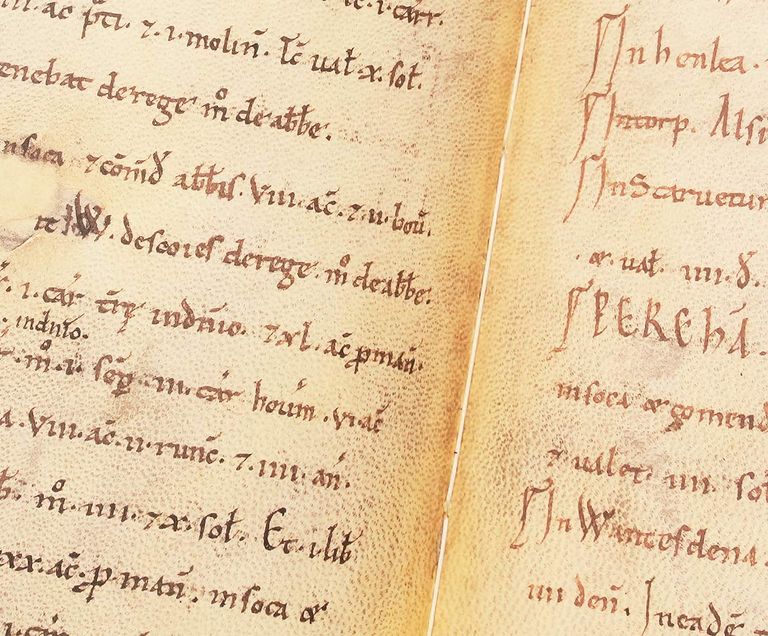 c̄. i. carr.
ac p̄ti. ⁊. i. molin̄. Tc̄ ual̵. x. sol̵.
enebat derege m̊ de abbe.
insoca ⁊ com̄d abbis. VIII. ac̄. ⁊. II. bou̅.
et W. descoies derege. m̊ de abbe.
. i. car tr̄e indnīo. ⁊ xl. ac̄ p man̄.
. indnīo.
. m̊. i. sēp. III. car boum. VI. ac̄
a. VIII. ac̄. II. runc̄. ⁊. IIII. an̄.
m̊. IIII. ⁊ x. sol̵. Et. i. lib̄
xx. ac̄. p man̄. insoca &
. i. car̄
In henlea.
In torp. Alsi
In Scaruetun
. & . ual̵. IIII. d̄.
SPEREHĀ.
insoca & comend
⁊ ualet. IIII. sol̵
In Wantesdena.
IIII den̄. In eadē